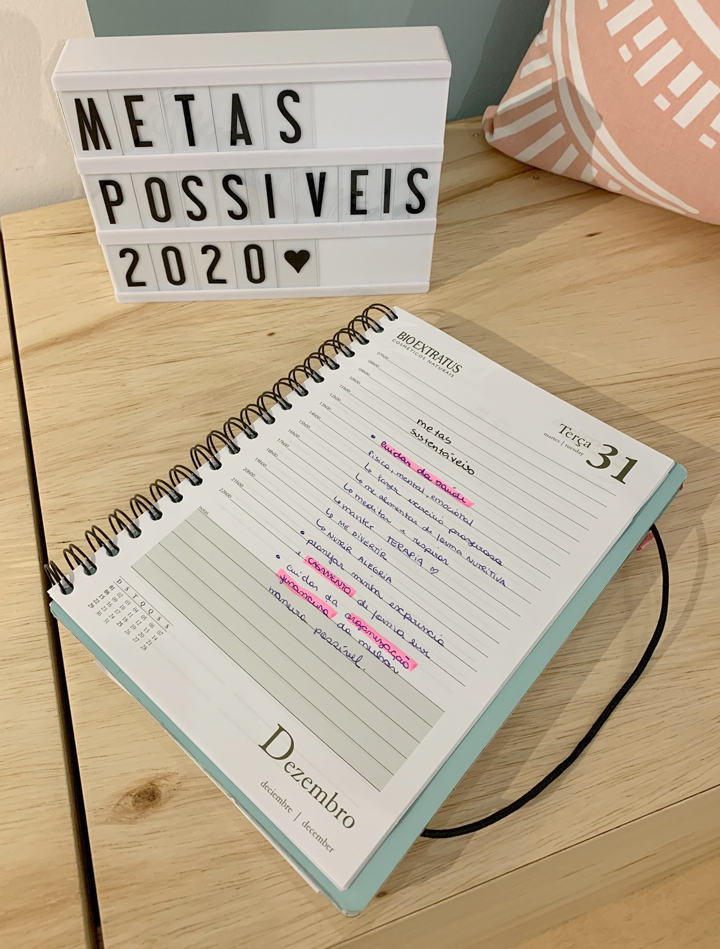 METAS
POSSIVEIS
2020 ♥
BIOEXTRATUS
COSMÉTICOS NATURAIS
Terça 31
martes | tuesday
metas
sustentáveis
• cuidar da saúde
física, mental, emocional
↳ fazer exercício prazeroso
↳ me alimentar de forma NUTRITIVA
↳ meditar e respirar
↳ manter TERAPIA ♡
↳ ME DIVERTIR
↳ NUTRIR ALEGRIA
• planejar minha experiência
e CASAMENTO de forma leve
• cuidar da organização
financeira da melhor
maneira possível.
Dezembro
deciembre | december